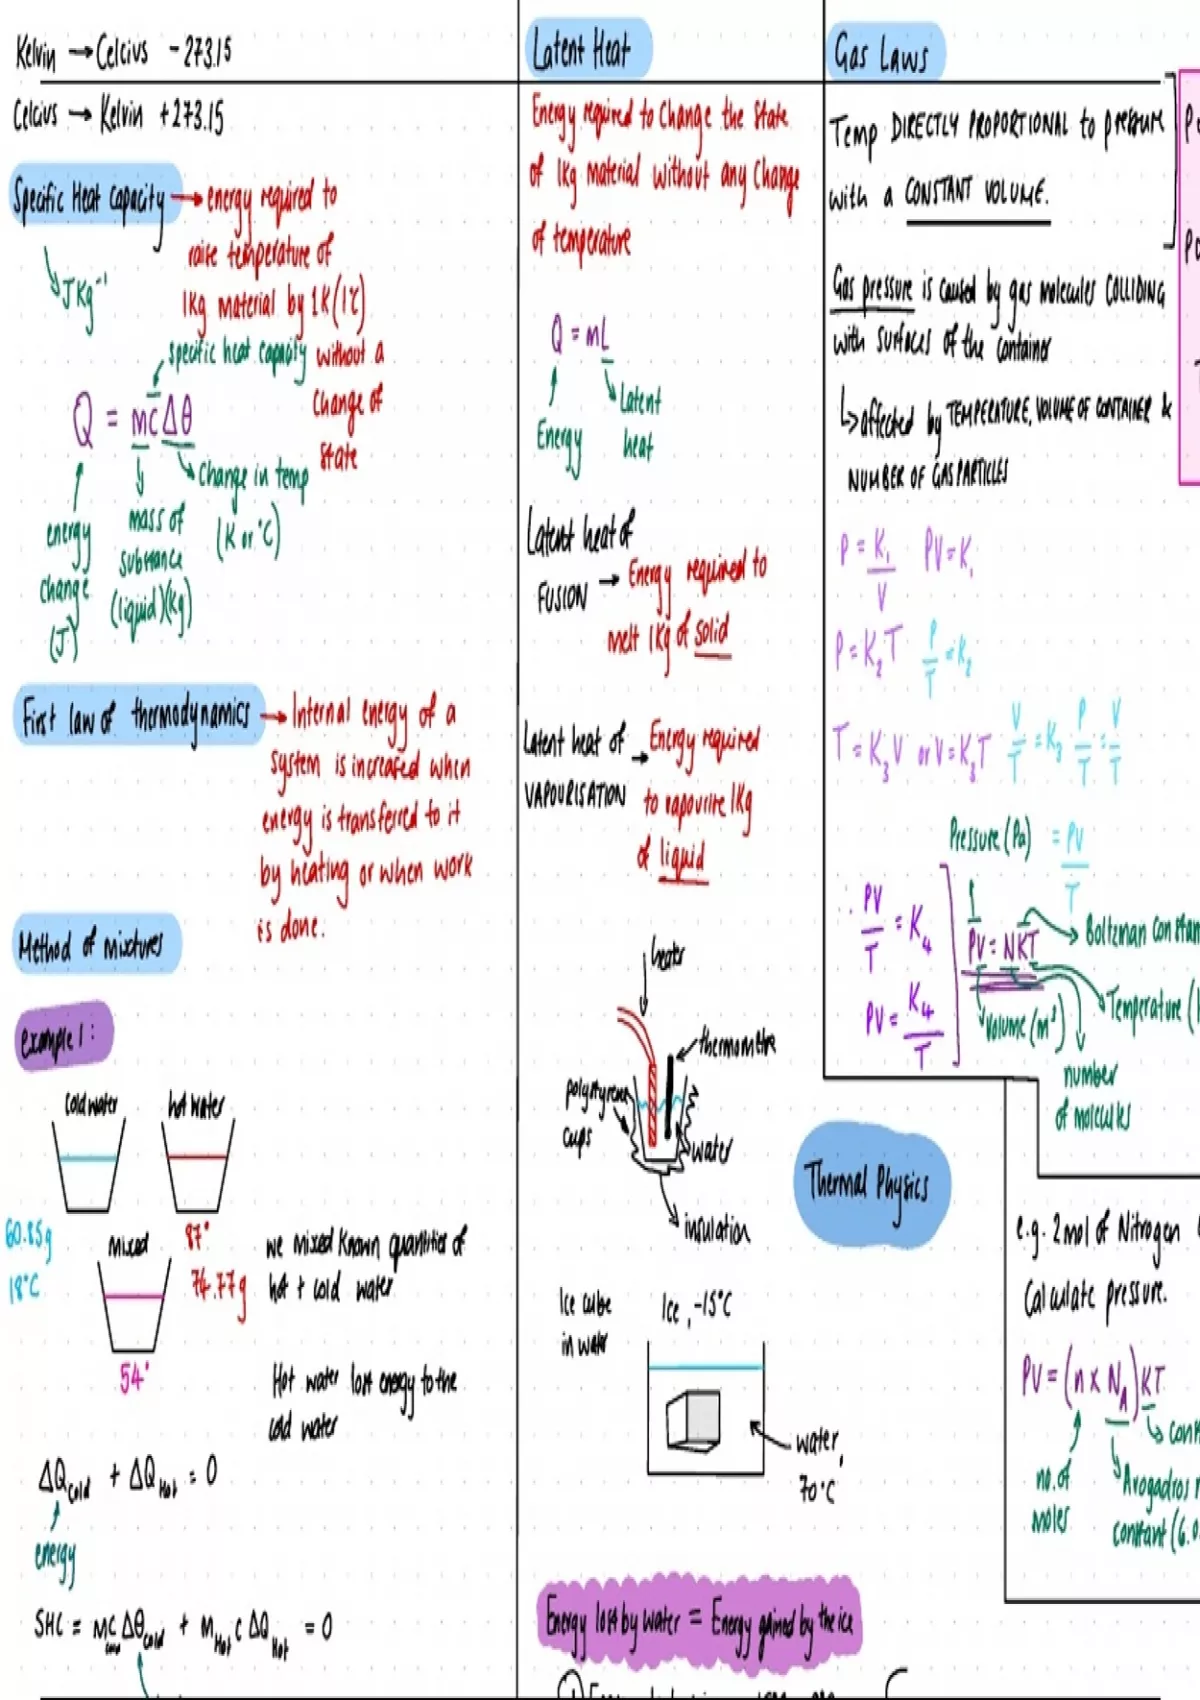 Kelvin → Celcius - 273.15
Celcius → Kelvin + 273.15
Specific Heat capacity → energy required to
raise temperature of
1Kg material by 1K (1°C)
without a
change of
state
JKg⁻¹
specific heat capacity
Q = mcΔθ
energy
change
(J)
mass of
substance
(liquid)(Kg)
Change in temp
(K or °C)
First law of thermodynamics → Internal energy of a
system is increased when
energy is transferred to it
by heating or when work
is done.
Method of mixtures
example 1:
cold water
hot water
60.85g
18°C
mixed
87°
74.77g
54°
we mixed known quantities of
hot + cold water
Hot water lost energy to the
cold water
ΔQcold + ΔQHot = 0
energy
SHC = mcoldcΔθcold + mHot c ΔQHot = 0
Latent Heat
Energy required to Change the State
of 1kg material without any Change
of temperature
Q = mL
Energy
Latent
heat
Latent heat of
FUSION → Energy required to
melt 1Kg of solid
Latent heat of
VAPOURISATION → Energy required
to vapourise 1Kg
of liquid
heater
thermometre
polystyrene
cups
water
insulation
Ice cube
in water
Ice, -15°C
water,
70°C
Energy lost by water = Energy gained by the ice
Gas Laws
Temp DIRECTLY PROPORTIONAL to pressure
with a CONSTANT VOLUME.
Gas pressure is caused by gas molecules COLLIDING
with surfaces of the container
↳ affected by TEMPERATURE, VOLUME OF CONTAINER &
NUMBER OF GAS PARTICLES
P = K₁/V PV = K₁
P = K₂T P/T = K₂
T = K₃V or V = K₃T V/T = K₃ P/T = V/T
= PV/T
Pressure (Pa)
∴ PV/T = K₄
PV = K₄/T
PV = NKT
Boltzman Constan
Temperature (
Volume (m³)
number
of molecules
Thermal Physics
e.g. 2mol of Nitrogen
Calculate pressure.
PV = (n x NA)KT
no. of
moles
Avogadros
constant (6.0